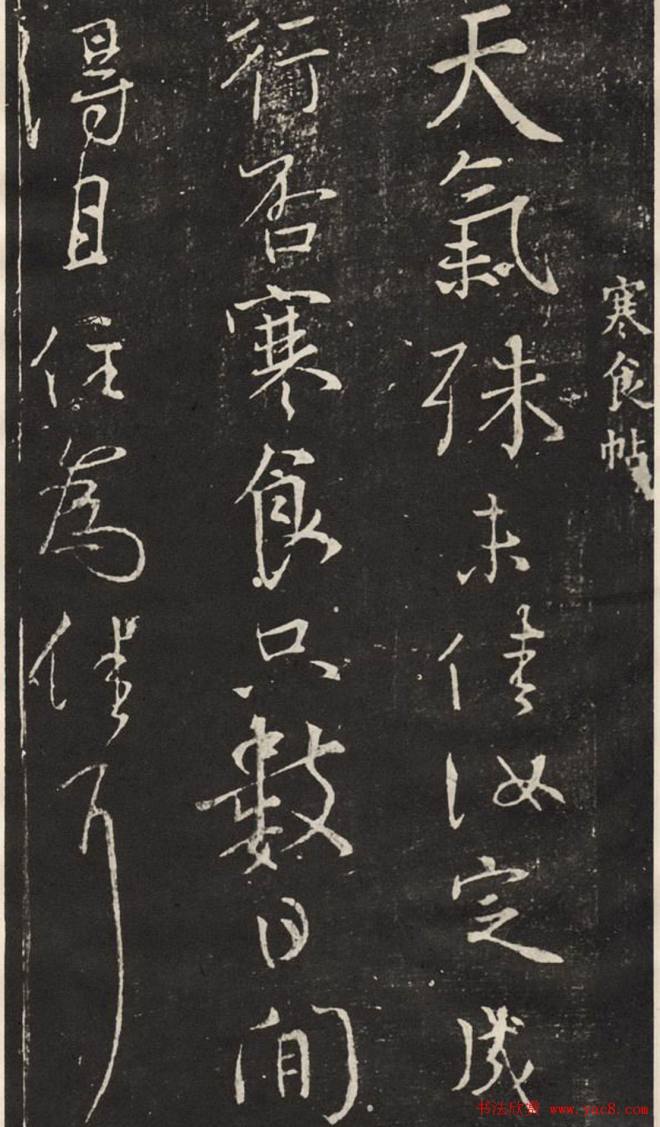 寒食帖
天氣殊未佳汝定成
行否寒食只數日間
得且住為佳耳
书法欣赏 www.yac8.com